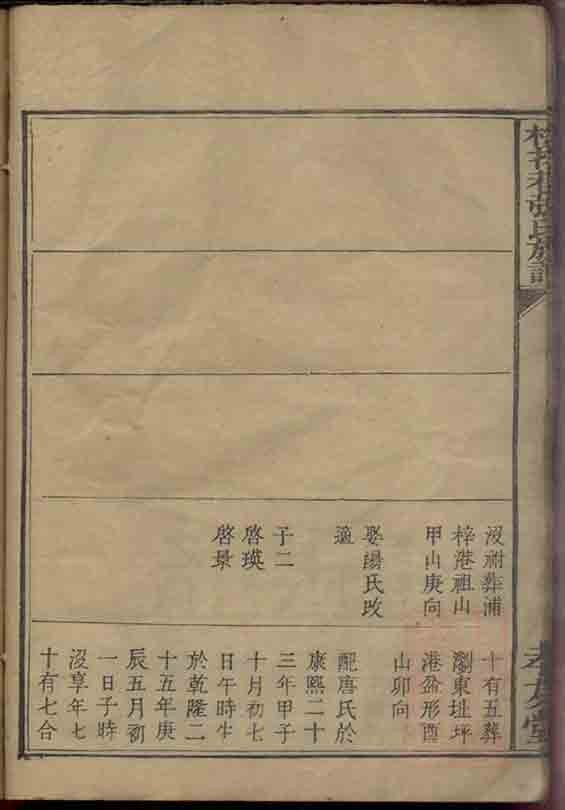 氏族譜
孝友堂
沒祔葬浦
梓港祖山
甲山庚向
娶湯氏改
適
子二
啓瑛
啓景
十有五葬
瀏東址坪
港盆形酉
山卯向
配唐氏於
康熙二十
三年甲子
十月初七
日午時生
於乾隆二
十五年庚
辰五月初
一日子時
沒享年七
十有七合